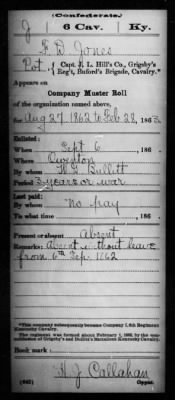 (Confederate.)
J 6 Cav. Ky.
R D Jones
Pvt. of Capt. J. L. Hill's Co., Grigsby's
Reg't, Buford's Brigade, Cavalry.*
Appears on
Company Muster Roll
of the organization named above,
for Aug 27, 1862 to Feb 28, 1863
Enlisted:
When Sept 6, 186
Where Owenton
By whom Bullitt
Period 3 years or war
Last paid:
By whom no pay
To what time , 186
Present or absent Absent
Remarks: Absent without leave
from 6th Sep. 1862
*This company subsequently became Company I, 6th Regiment
Kentucky Cavalry.
Book mark:
H. J. Callahan
(642) Copyist.